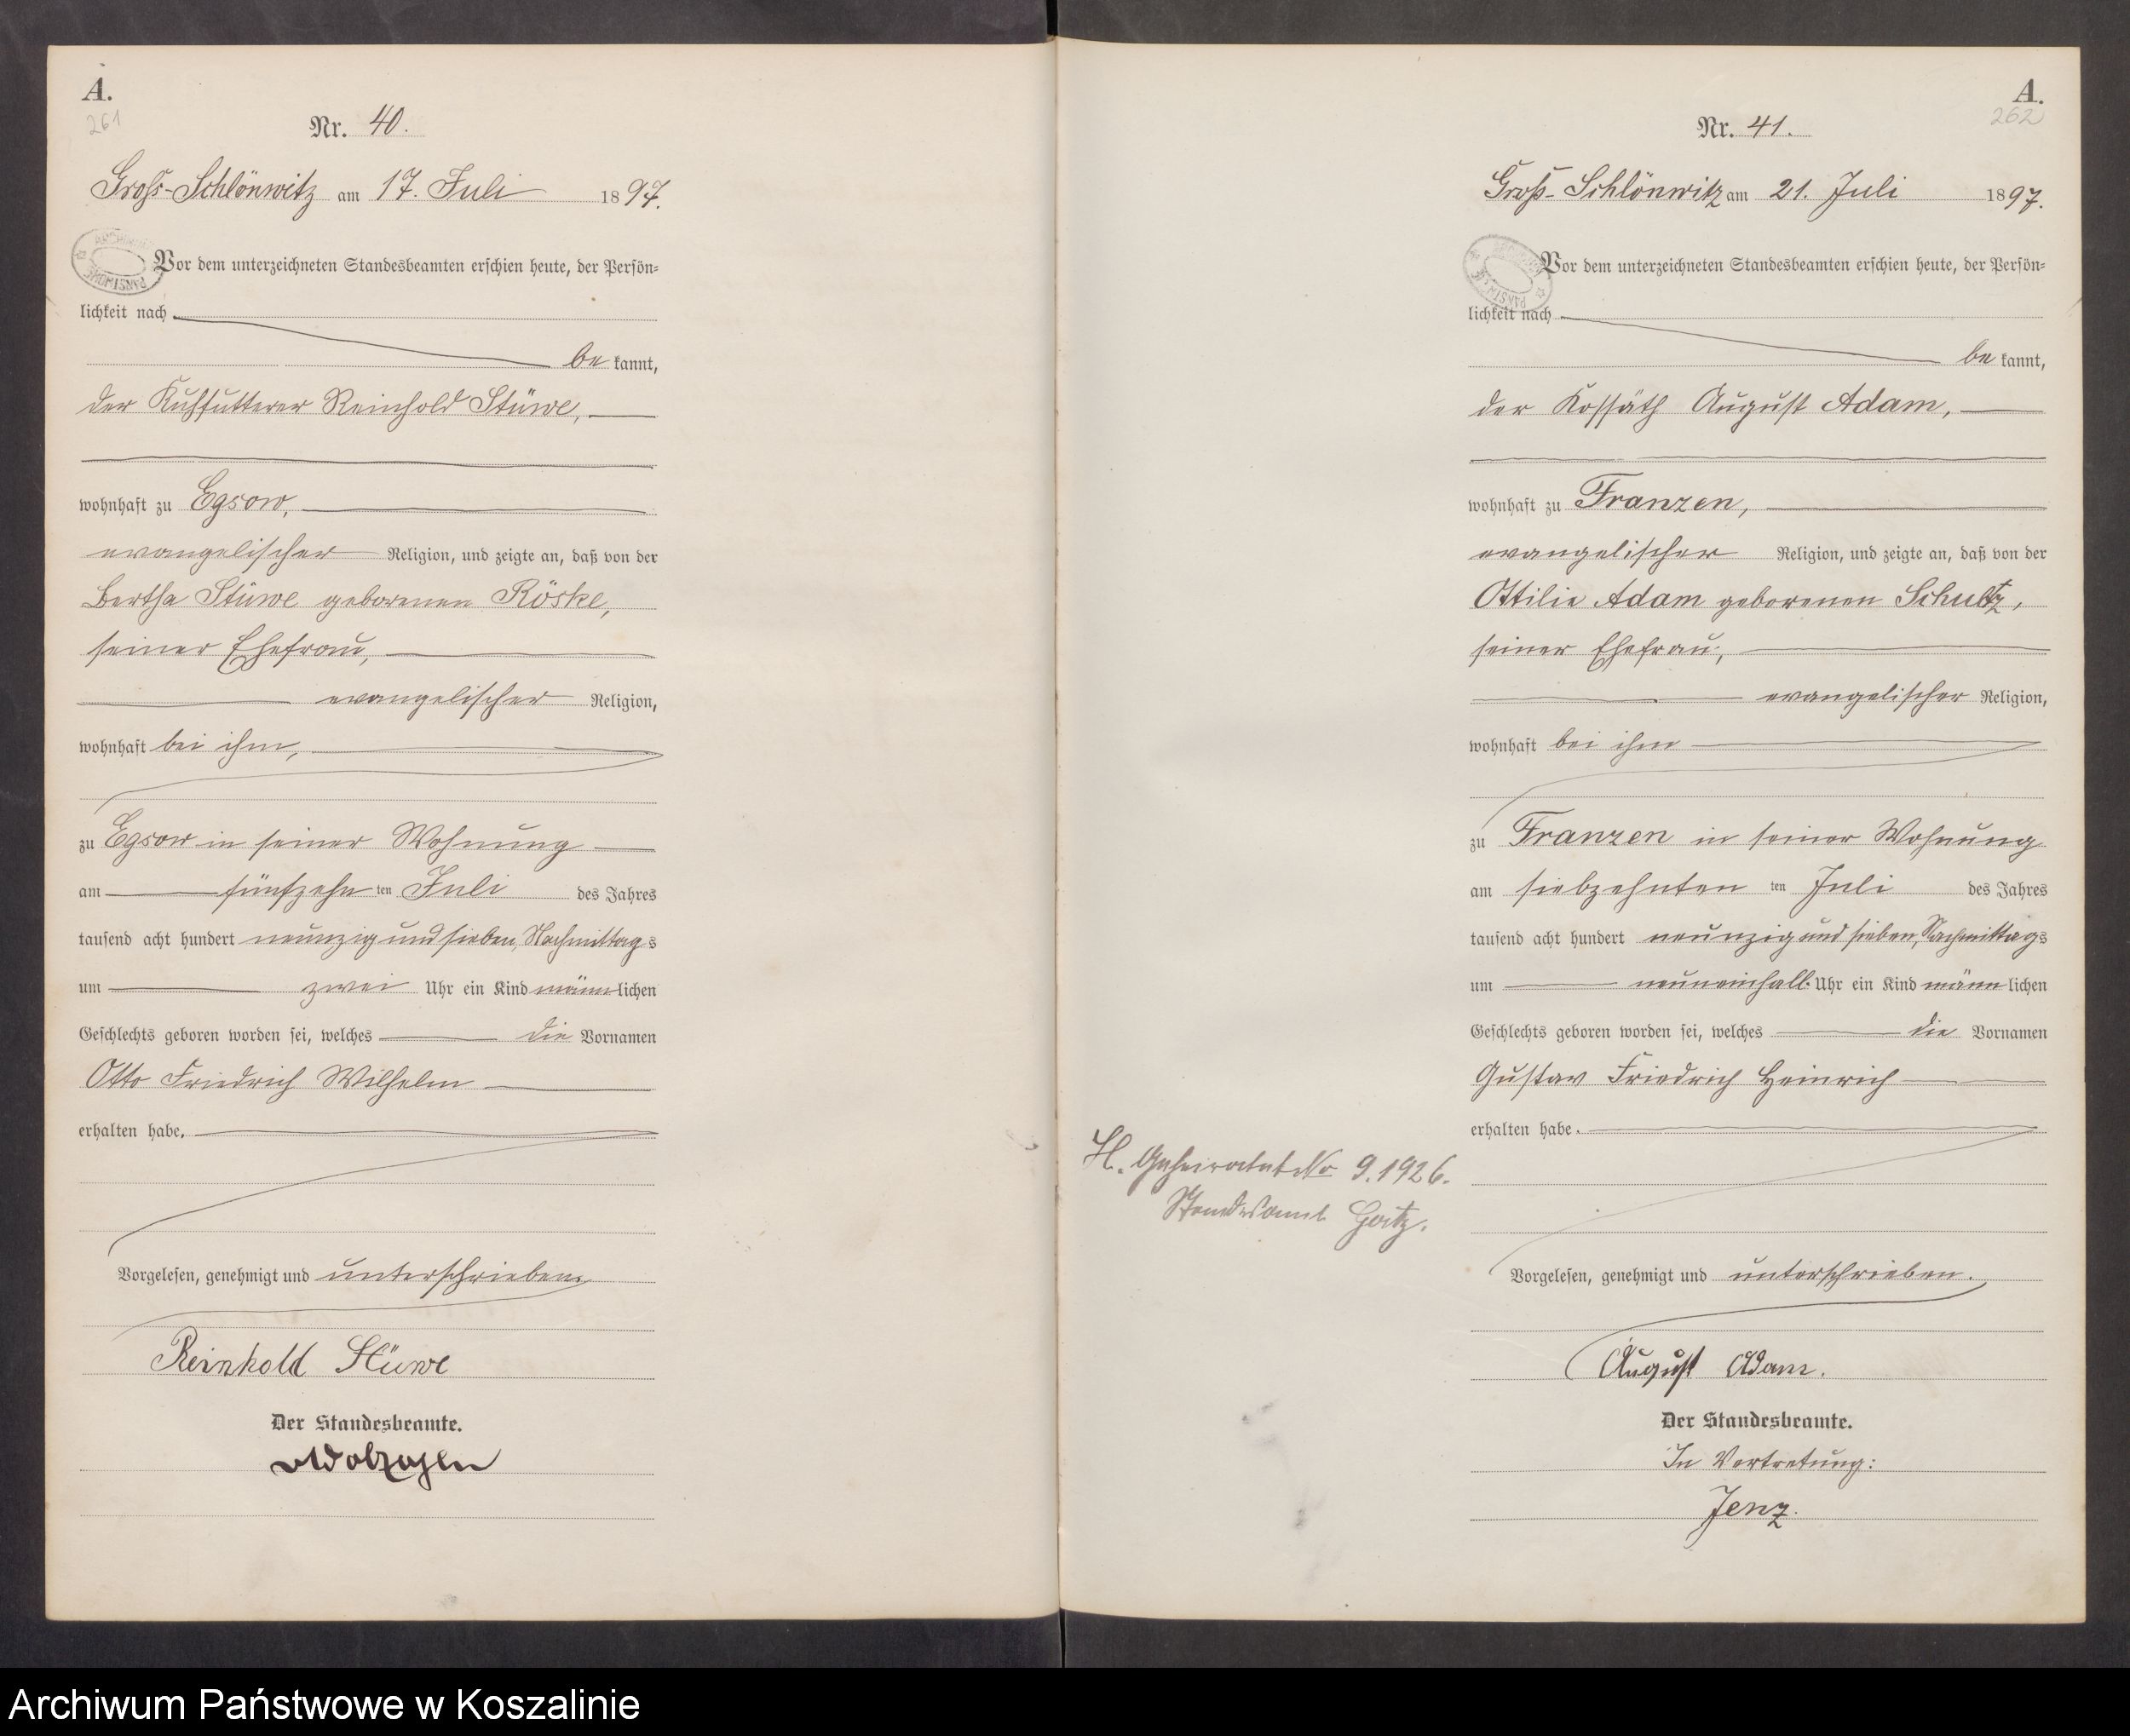 A.
261
Nr. 40.
Groß-Schlönwitz am 17. Juli 1897.
Vor dem unterzeichneten Standesbeamten erschien heute, der Persön-
lichkeit nach
bekannt,
der Kuhfutterer Reinhold Stüwe,
wohnhaft zu Egsow,
evangelischer Religion, und zeigte an, daß von der
Bertha Stüwe geborenen Röske,
seiner Ehefrau,
evangelischer Religion,
wohnhaft bei ihm,
zu Egsow in seiner Wohnung
am fünfzehnten Juli des Jahres
tausend acht hundert neunzig und sieben, Nachmittags
um zwei Uhr ein Kind männlichen
Geschlechts geboren worden sei, welches die Vornamen
Otto Friedrich Wilhelm
erhalten habe.
Vorgelesen, genehmigt und unterschrieben.
Reinhold Stüwe
Der Standesbeamte.
vWolzogen
A.
262
Nr. 41.
Groß-Schlönwitz am 21. Juli 1897.
Vor dem unterzeichneten Standesbeamten erschien heute, der Persön-
lichkeit nach
bekannt,
der Kossäth August Adam,
wohnhaft zu Franzen,
evangelischer Religion, und zeigte an, daß von der
Ottilie Adam geborenen Schultz,
seiner Ehefrau,
evangelischer Religion,
wohnhaft bei ihm
zu Franzen in seiner Wohnung
am siebzehnten ten Juli des Jahres
tausend acht hundert neunzig und sieben, Nachmittags
um neuneinhalb Uhr ein Kind männlichen
Geschlechts geboren worden sei, welches die Vornamen
Gustav Friedrich Heinrich
erhalten habe.
H. Geheiratet No 9.1926.
Standesamt
Vorgelesen, genehmigt und unterschrieben.
August Adam.
Der Standesbeamte.
In Vertretung:
Jenz.
Archiwum Państwowe w Koszalinie